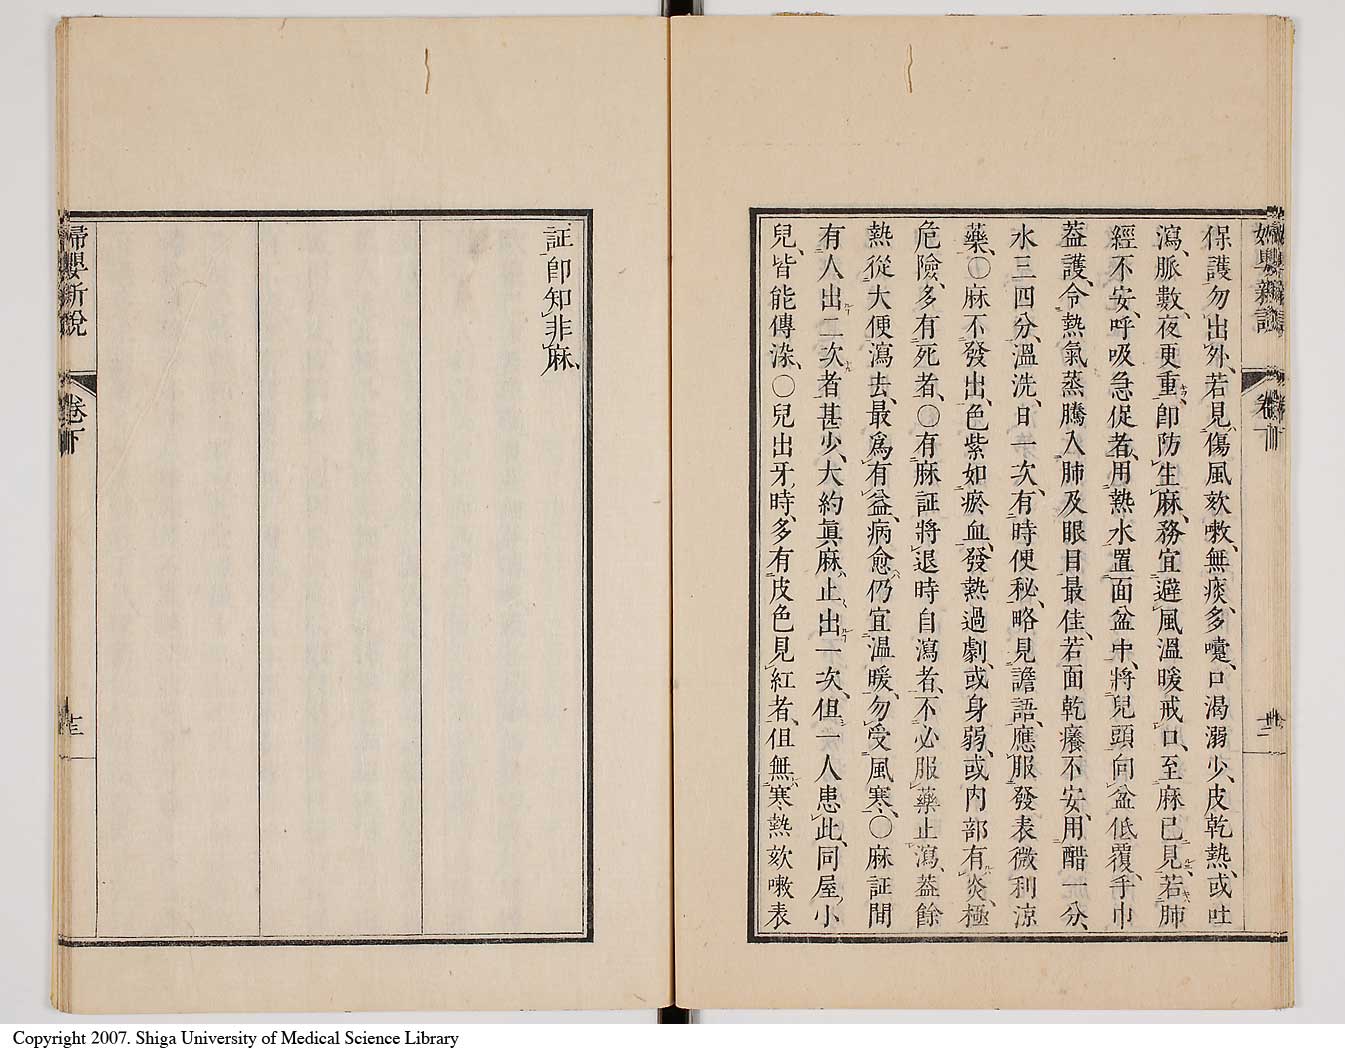 婦嬰新説 卷下 十二
保護勿出外、若見傷風欬嗽、無痰、多嚏、口渴溺少、皮乾熱、或吐
瀉、脈數、夜更重、即防生麻、務宜避風溫暖戒口、至麻已見、若肺
經不安、呼吸急促者、用熱水置面盆中、將兒頭向盆低覆、手巾
葢護、令熱氣蒸騰入肺及眼目最佳、若面乾癢不安、用醋一分、
水三四分、溫洗、日一次、有時便秘、略見譫語、應服發表微利涼
藥、〇麻不發出、色紫如瘀血、發熱過劇、或身弱、或內部有炎、極
危險、多有死者、〇有麻証將退時自瀉者、不必服藥止瀉、葢餘
熱從大便瀉去、最爲有益、病愈仍宜溫暖、勿受風寒、〇麻証間
有人出二次者甚少、大約眞麻止出一次、但一人患此、同屋小
兒、皆能傳染、〇兒出牙時、多有皮色見紅者、但無寒熱欬嗽表
証、即知非麻、
婦嬰新說 卷下 十三
Copyright 2007. Shiga University of Medical Science Library